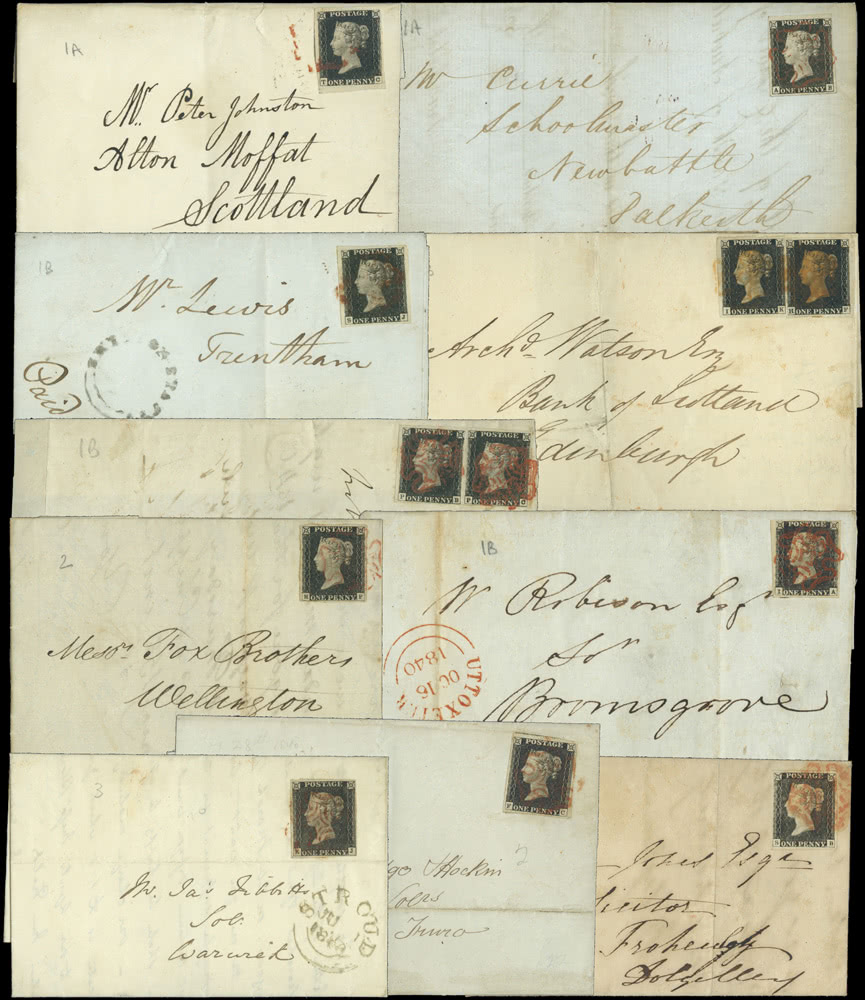 1A
POSTAGE
T G
ONE PENNY
Mr. Peter Johnston
Alton Moffat
Scotland
1A
POSTAGE
A B
ONE PENNY
Mr Currie
Schoolmaster
Newbattle
Dalkeith
1B
POSTAGE
S J
ONE PENNY
Mr. Lewis
Trentham
Paid
POSTAGE POSTAGE
ONE PENNY ONE PENNY
Archd. Watson Esq
Bank of Scotland
Edinburgh
1B
POSTAGE POSTAGE
ONE PENNY ONE PENNY
2
POSTAGE
ONE PENNY
Messrs Fox Brothers
Wellington
1B
POSTAGE
I A
ONE PENNY
W Robison Esqr
Solr
Bromsgrove
UTTOXETER
OC 16
1840
3
POSTAGE
ONE PENNY
Mr. Jas Tibbitts
Sol.
Warwick
STROUD
POSTAGE
ONE PENNY
2
Hockin
Solrs
Truro
POSTAGE
ONE PENNY
Jones Esqr
licitor
Dolgelley